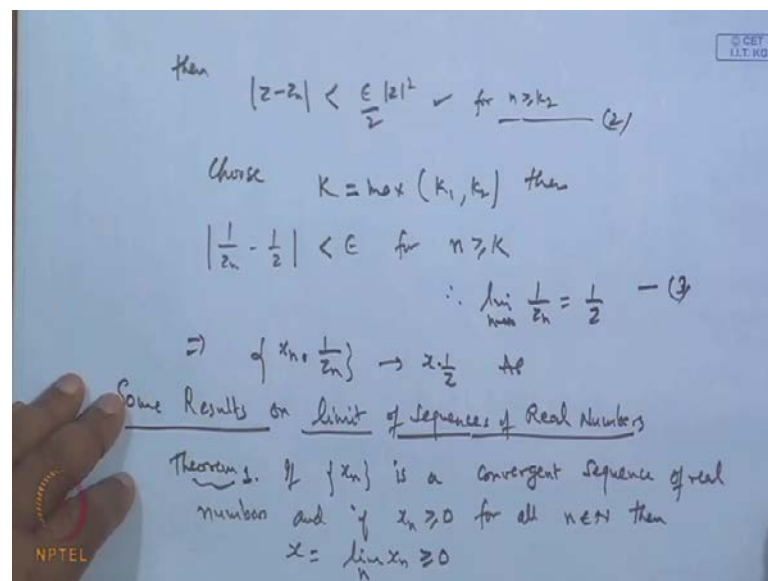 © CET
I.I.T. KG
then
|z-zn| < ε/2 |z|² ✓ for n ≥ k2 — (2)
Choose K = max (k1, k2) then
|1/zn - 1/z| < ε for n ≥ K
∴ lim n→∞ 1/zn = 1/z — (3)
⇒ {xn · 1/zn} → x · 1/z
Some Results on limit of Sequences of Real Numbers
Theorem 1. If {xn} is a convergent sequence of real
number and if xn ≥ 0 for all n ∈ N then
x = lim n xn ≥ 0
NPTEL